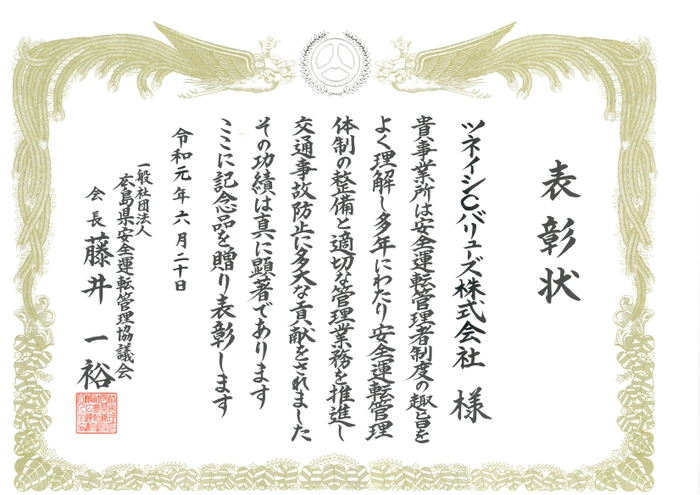 表彰状
ツネイシCバリューズ株式会社 様
貴事業所は安全運転管理者制度の趣旨を
よく理解し多年にわたり安全運転管理
体制の整備と適切な管理業務を推進し
交通事故防止に多大な貢献をされました
その功績は真に顕著であります
ここに記念品を贈り表彰します
令和元年六月二十日
一般社団法人
広島県安全運転管理協議会
会長 藤井一裕